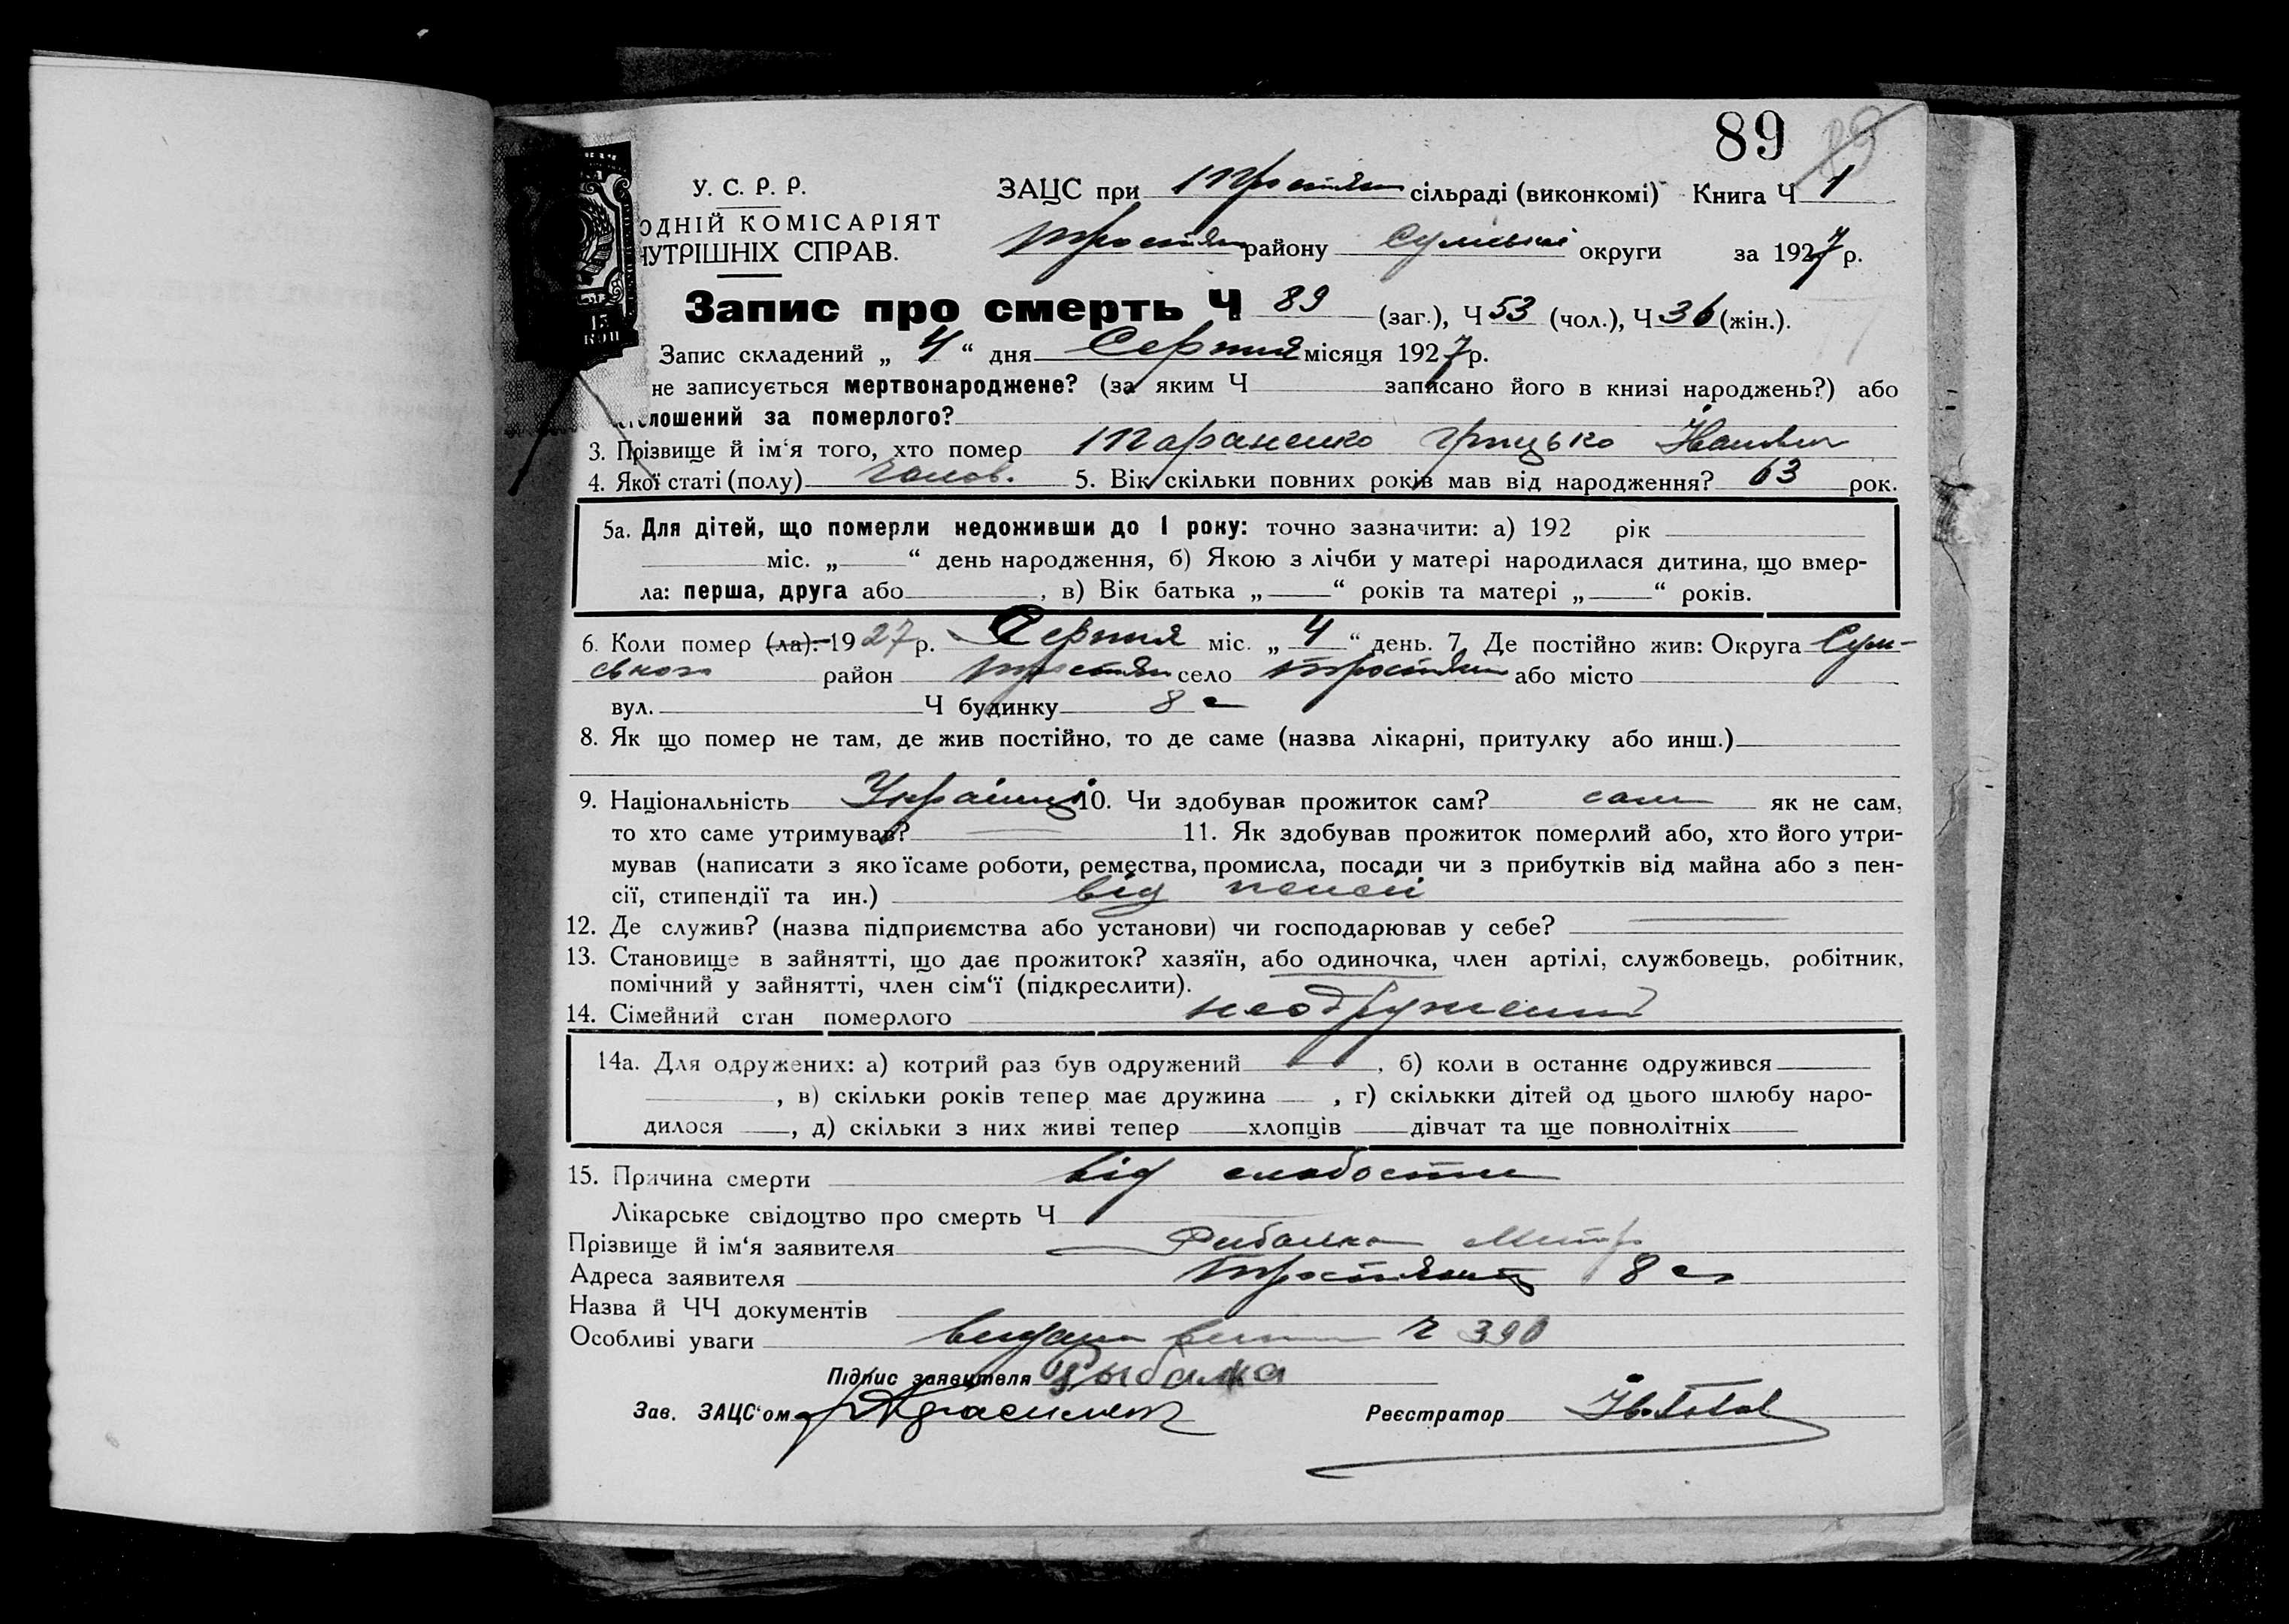 89
89
У. С. Р. Р.
ЗАЦС при Тростян сільраді (виконкомі) Книга Ч 1
ОДНІЙ КОМІСАРІЯТ
Тростян району Сумської округи за 1927 р.
НУТРІШНІХ СПРАВ.
Запис про смерть Ч 89 (заг.), Ч 53 (чол.), Ч 36 (жін.).
15
КОП
Запис складений „ 4 “ дня Серпня місяця 1927 р.
не записується мертвонароджене? (за яким Ч записано його в книзі народжень?) або
лошений за померлого?
3. Прізвище й ім‘я того, хто помер Тараненко Грицько Іванович
4. Якої статі (полу) чолов. 5. Вік скільки повних років мав від народження? 63 рок.
5а. Для дітей, що померли недоживши до 1 року: точно зазначити: а) 192 рік
міс. „ “ день народження, б) Якою з лічби у матері народилася дитина, що вмер-
ла: перша, друга або , в) Вік батька „ “ років та матері „ “ років.
6. Коли помер (ла): 1927 р. Серпня міс. „ 4 “ день. 7. Де постійно жив: Округа Сум-
ського район Тростян село Тростян або місто
вул. Ч будинку 8 с
8. Як що помер не там, де жив постійно, то де саме (назва лікарні, притулку або инш.)
9. Національність Українці 10. Чи здобував прожиток сам? сам як не сам,
то хто саме утримував? 11. Як здобував прожиток померлий або, хто його утри-
мував (написати з яко їсаме роботи, ремества, промисла, посади чи з прибутків від майна або з пен-
сії, стипендії та ин.) від пенсії
12. Де служив? (назва підприємства або установи) чи господарював у себе?
13. Становище в зайнятті, що дає прожиток? хазяїн, або одиночка, член артілі, службовець, робітник,
помічний у зайнятті, член сім‘ї (підкреслити).
14. Сімейний стан померлого неодружений
14а. Для одружених: а) котрий раз був одружений , б) коли в останнє одружився
, в) скільки років тепер має дружина , г) скількки дітей од цього шлюбу наро-
дилося , д) скільки з них живі тепер хлопців дівчат та ще повнолітніх
15. Причина смерти від слабости
Лікарське свідоцтво про смерть Ч
Прізвище й ім‘я заявителя Рибалка Митр
Адреса заявителя Тростянець 8 с
Назва й ЧЧ документів
Особливі уваги видана Ч 390
Підпис заявителя Рыбалка
Зав. ЗАЦС‘ом
Реєстратор